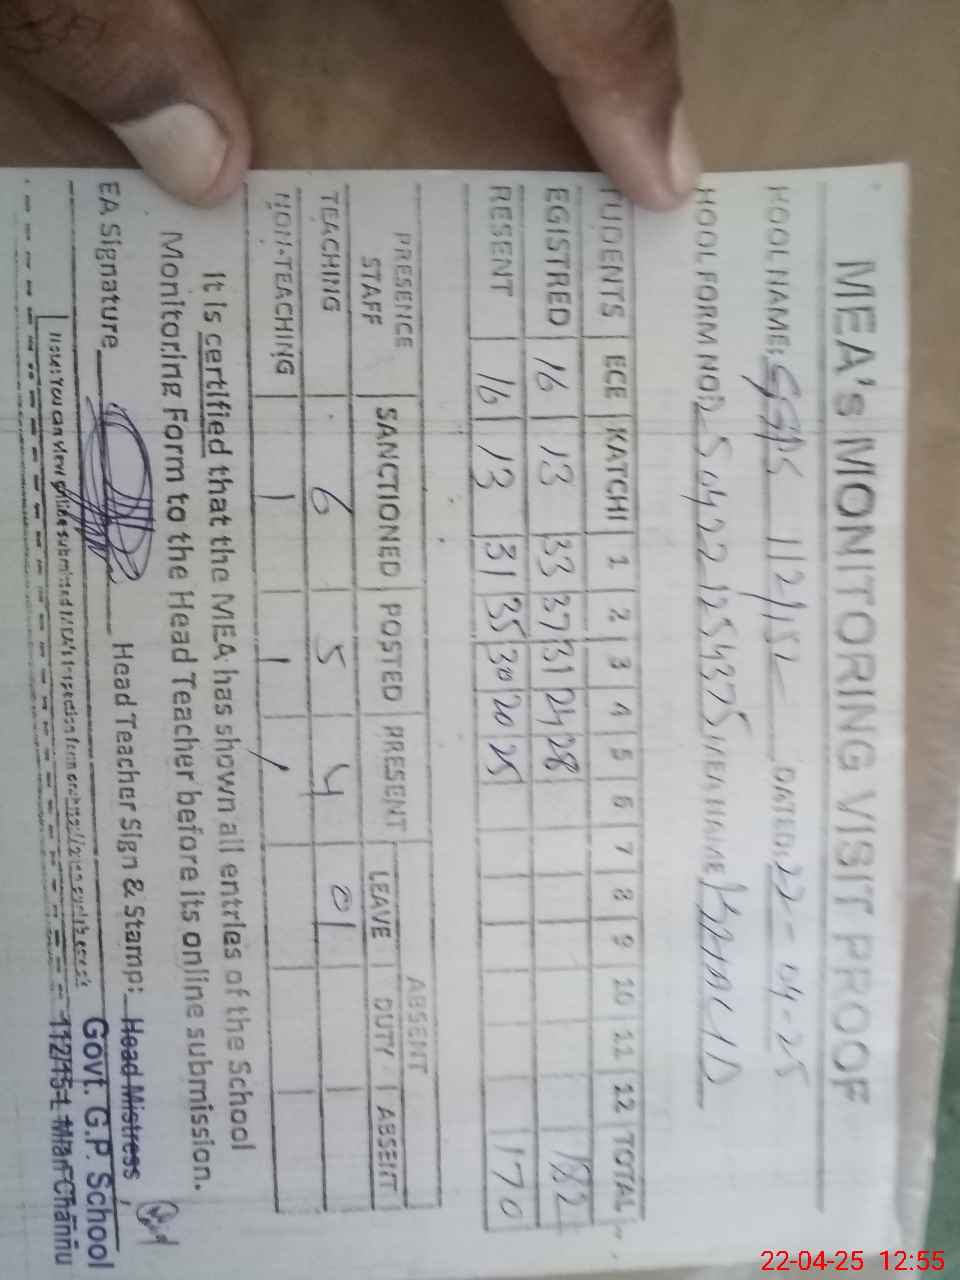 MEA's MONITORING VISIT PROOF
HOOL NAME: GGPS 112/15L DATED 22-04-25
HOOL FORM NO: MEA NAME
TUDENTS ECE KATCHI 1 2 3 4 5 6 7 8 9 10 11 12 TOTAL
EGISTRED 16 13 33 37 31 24 28 182
RESENT 16 13 31 35 30 20 25 170
PRESENCE ABSENT
STAFF SANCTIONED POSTED PRESENT LEAVE DUTY ABSENT
TEACHING 6 5 4 01
NON-TEACHING 1 1 1
It is certified that the MEA has shown all entries of the School
Monitoring Form to the Head Teacher before its online submission.
EA Signature Head Teacher Sign & Stamp: Head Mistress
Govt. G.P. School
112/15-L Mian Channu
Note: You can view online submitted MEA's inspection form on
22-04-25 12:55